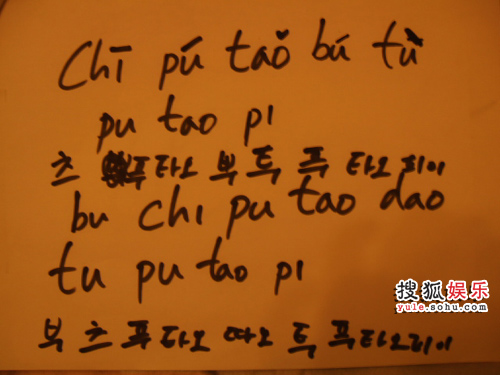 Chī pú taǒ bú tù
pu tao pi
츠 푸타오 뿌 투 푸 타오 피이
bu chi pu tao dao
tu pu tao pi
부 츠 푸 타오 따오 투 푸타오피이
搜狐娱乐
yule.sohu.com